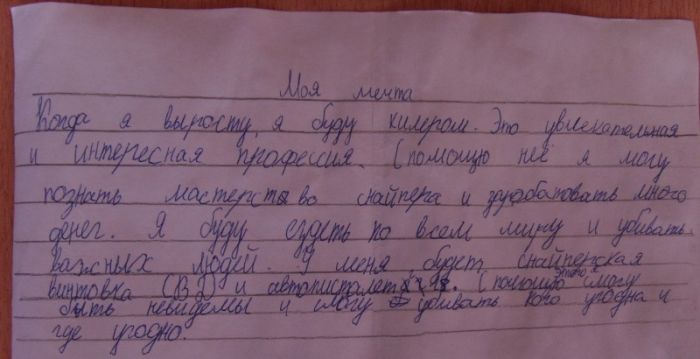 Моя мечта
Когда я вырасту, я буду килером. Это увлекательная
и интересная профессия. С помощю неё я могу
познать мастерство снайпера и зарабатовать много
денег. Я буду ездеть по всем миру и убивать
важных людей. У меня будет снайперская
винтовка и автопистолет С помощю этого я смогу
быть невидемы и смогу убивать кого угодна и
где угодно.